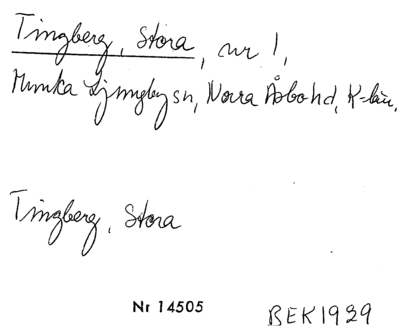 Tingberg, Stora, nr 1,
Munka Ljungby sn, Norra Åsbo hd, K-län,
Tingberg, Stora
Nr 14505 BEK1929